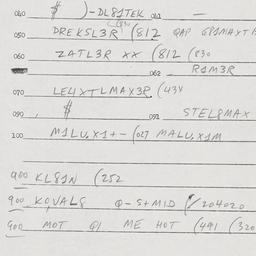 040 $ )-DL81TEK 061 —
050 DREKSL3R (812 QAP GP8MAXTA
060 ZATL3R XX (812 (830
062 R1M3R
070 LE4IXTLMAX3R (434
090 $ 092 STEL8MAX
100 M1LU,X1+- (027 MALU,X1M
900 KL81N (252
900 KOVAL8 Q-S+MID 204020
900 MOT Q1 ME HOT (491 (320